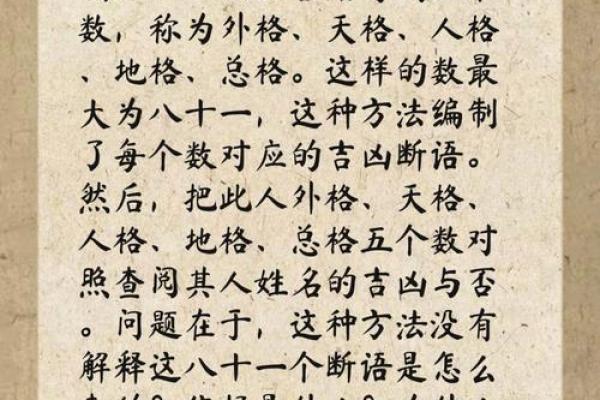 数，称为外格、天格、人格
、地格、总格。这样的数最
大为八十一，这种方法编制
了每个数对应的吉凶断语。
然后，把此人外格、天格、
人格、地格、总格五个数对
照查阅其人姓名的吉凶与否
。问题在于，这种方法没有
解释这八十一个断语是怎么